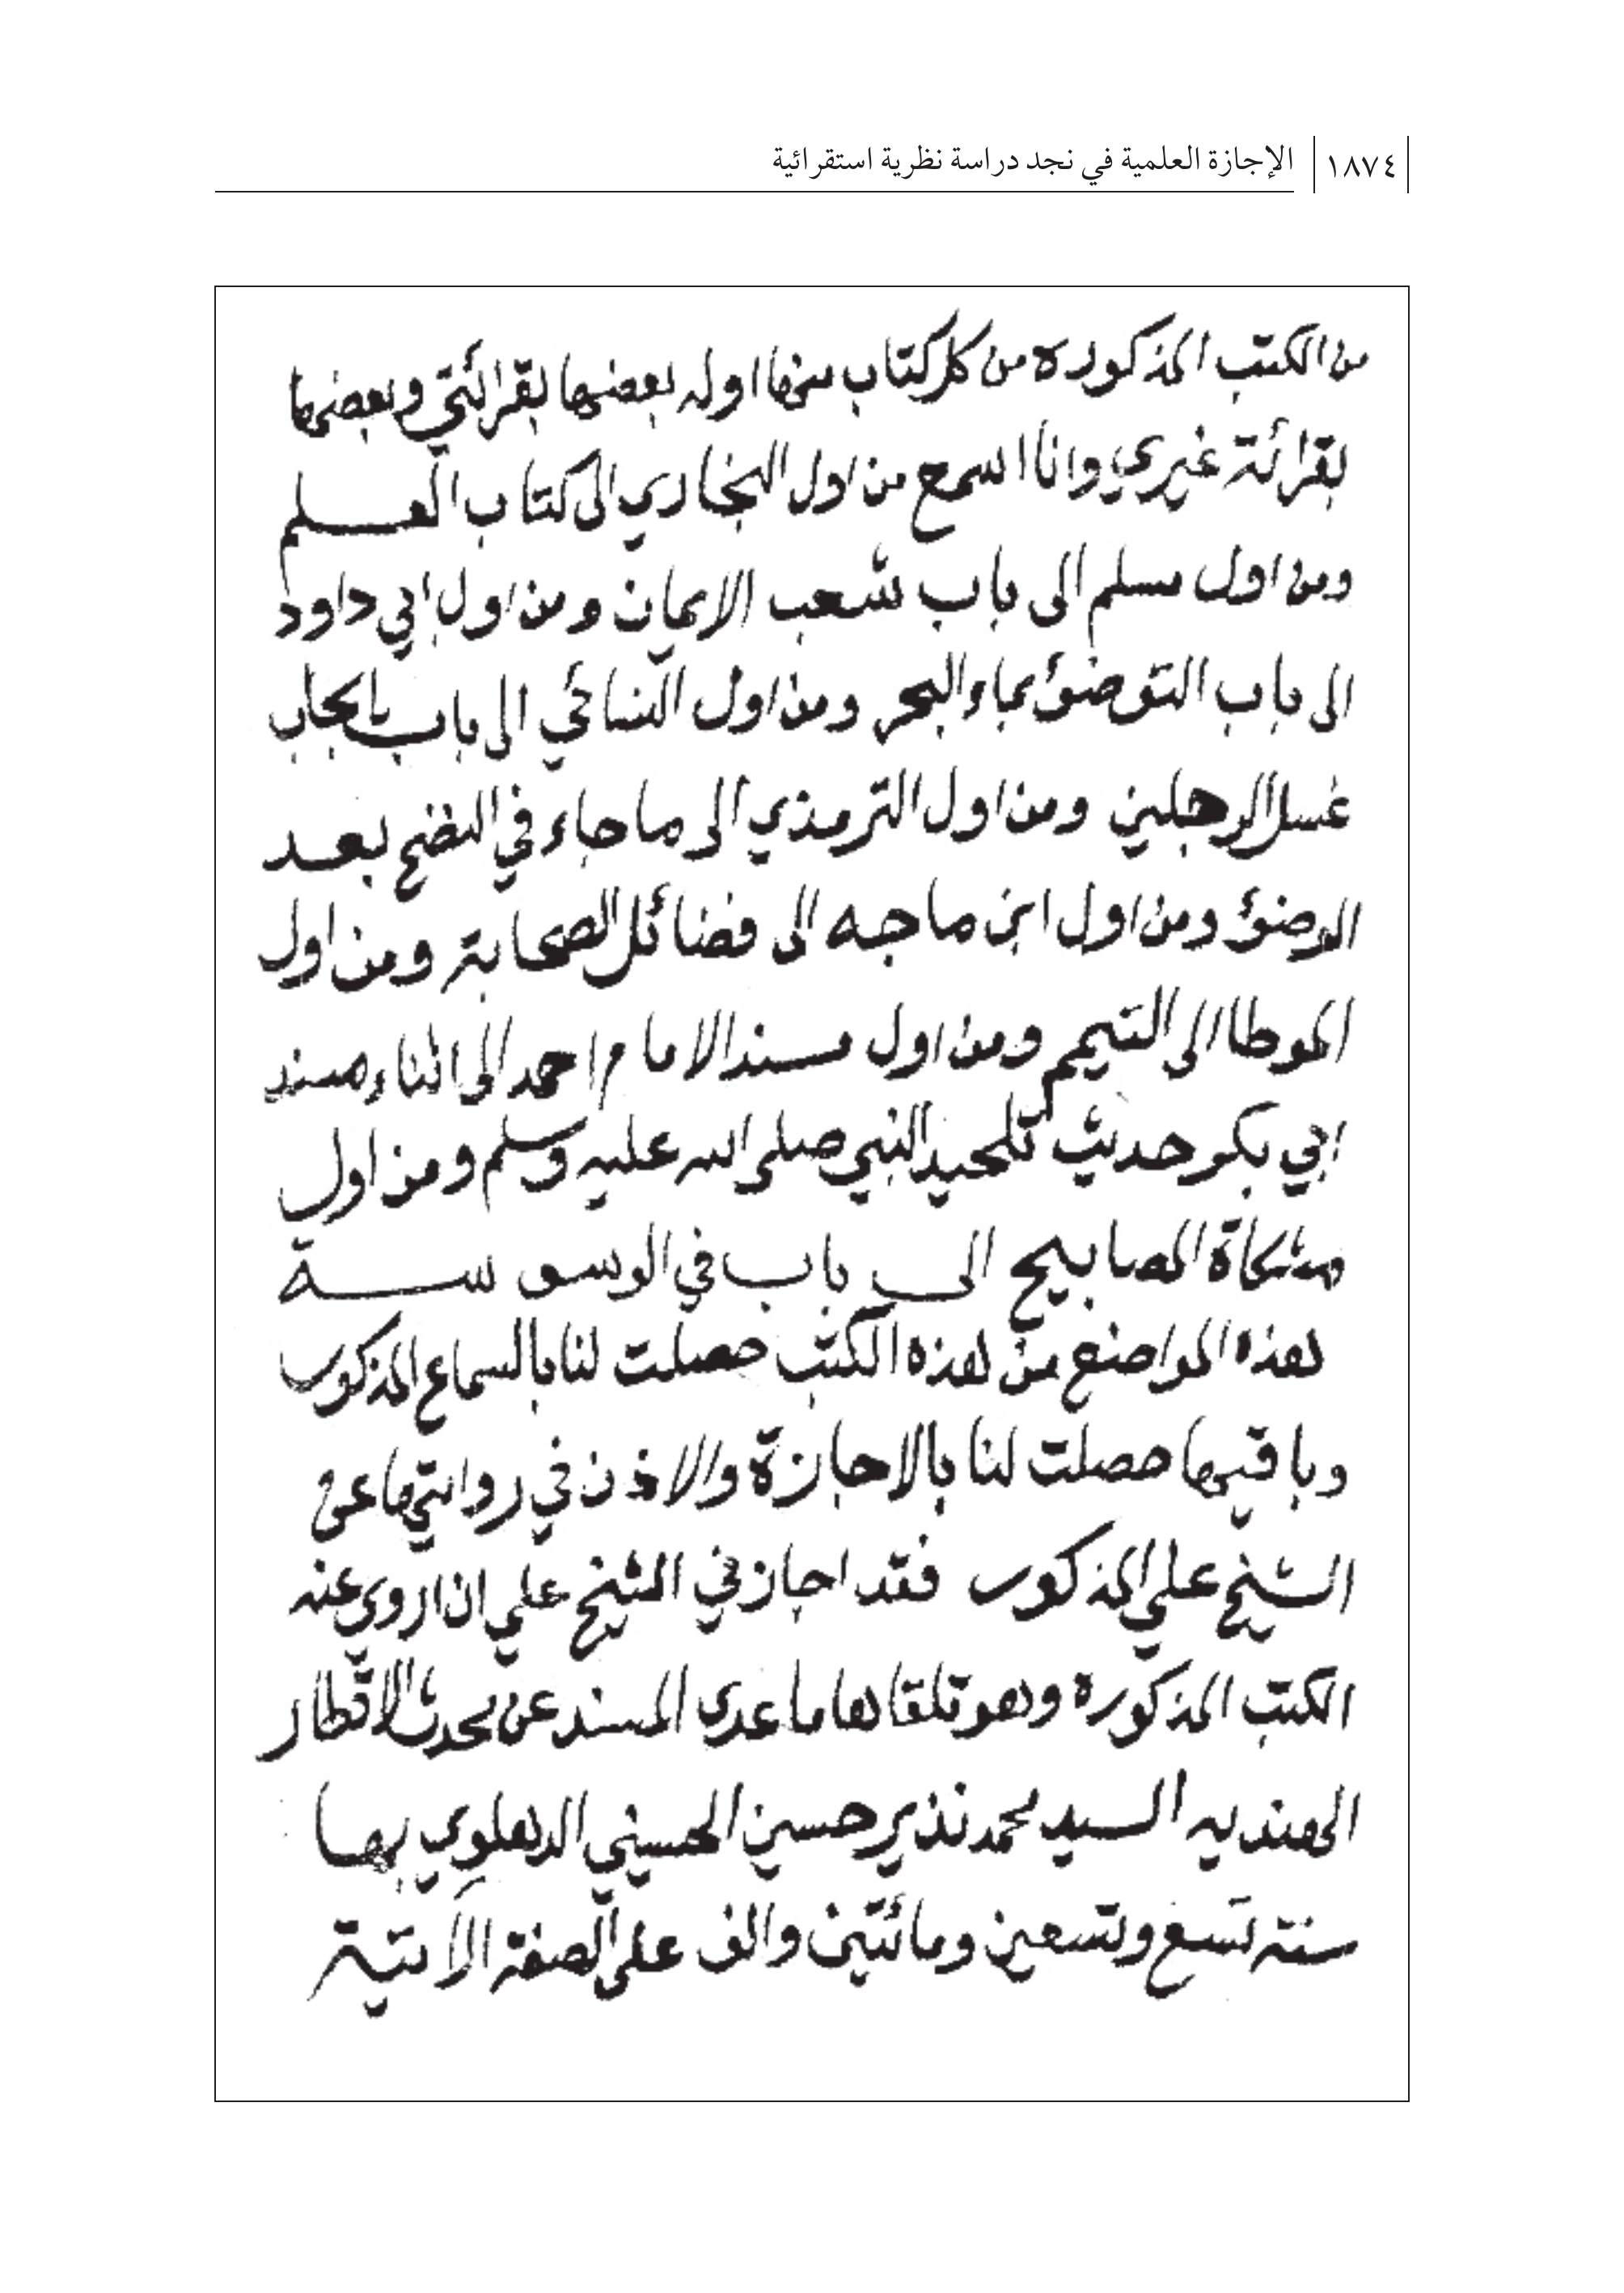 ١٨٧٤ الإجازة العلمية في نجد دراسة نظرية استقرائية
من الكتب المذكورة من كل كتاب منها اوله بعضها بقرائتي وبعضها
بقرائة غيري وانا اسمع من اول البخاري الى كتاب العلم
ومن اول مسلم الى باب شعب الايمان ومن اول ابي داود
الى باب التوضؤ بماء البحر ومن اول النسائي الى باب ايجاب
غسل الرجلين ومن اول الترمذي الى ما جاء في النضح بعد
الوضوء ومن اول ابن ماجه الى فضائل الصحابة ومن اول
الموطا الى التيمم ومن اول مسند الامام احمد الى اثناء مسند
ابي بكر حديث تلحيد النبي صلى الله عليه وسلم ومن اول
مشكاة المصابيح الى باب في الوسوسة
هذه المواضع من هذه الكتب حصلت لنا بالسماع المذكور
وباقيها حصلت لنا بالاجازة والاذن في روايتها عن
الشيخ علي المذكور فقد اجازني الشيخ علي ان اروي عنه
الكتب المذكورة وهو تلقاها ما عدى المسند عن محدث الاقطار
الهنديه السيد محمد نذير حسين الحسيني الدهلوي بها
سنة تسع وتسعين ومائتين والف على الصفة الاتية